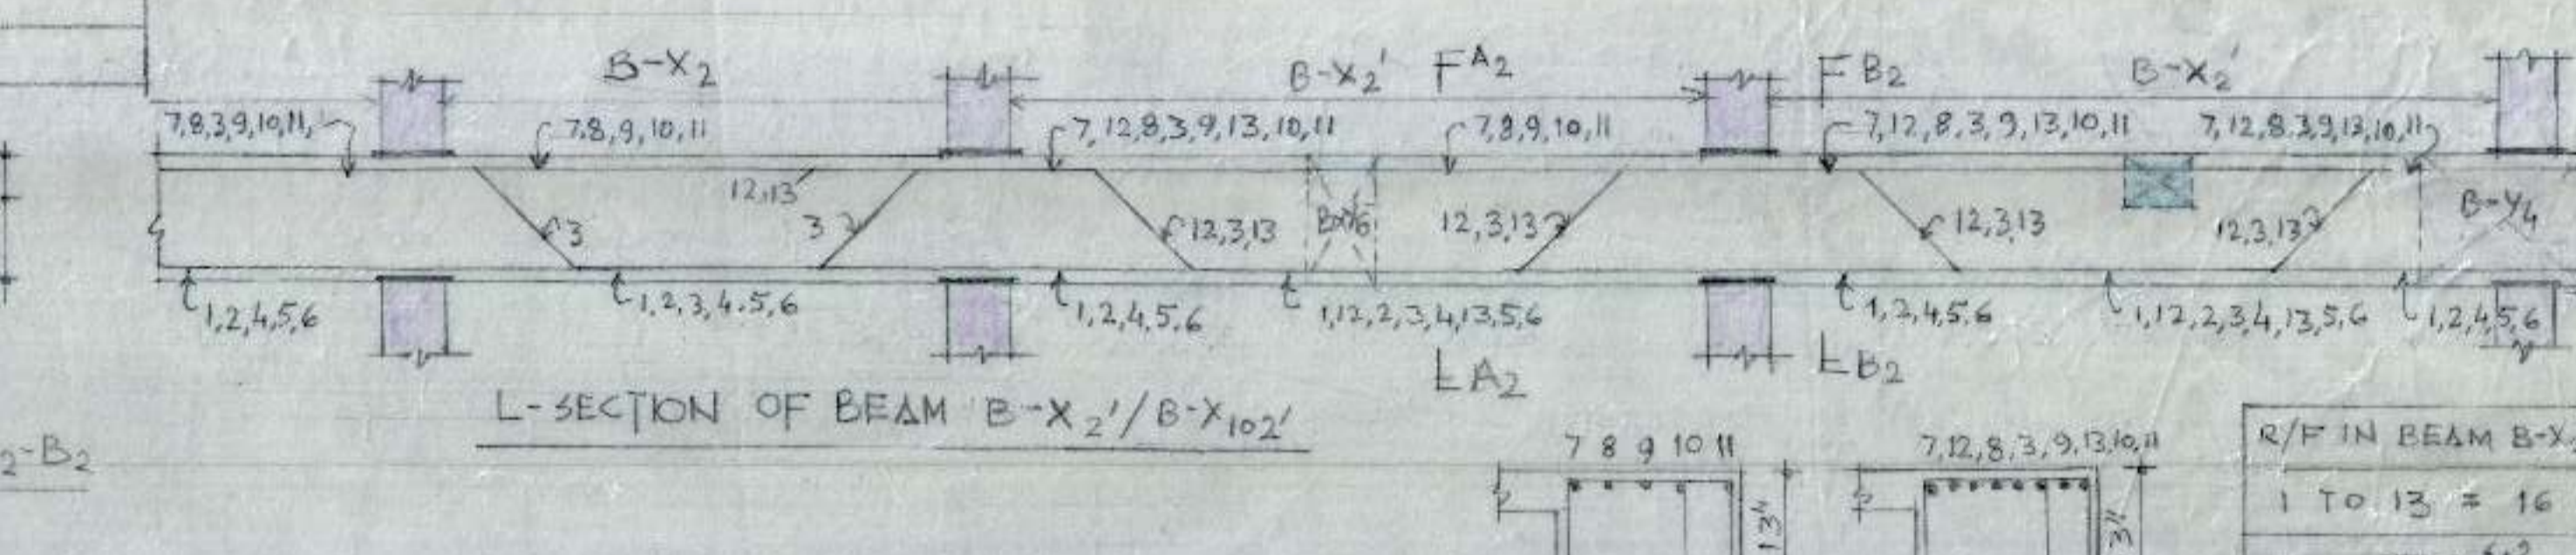 B-X2 B-X2' FA2 FB2 B-X2'
7,8,3,9,10,11, 7,8,9,10,11 7,12,8,3,9,13,10,11 7,8,9,10,11 7,12,8,3,9,13,10,11 7,12,8,3,9,13,10,11
12,13
3 3 12,3,13 12,3,13 12,3,13 12,3,13 B-Y4
1,2,4,5,6 1,2,3,4,5,6 1,2,4,5,6 1,12,2,3,4,13,5,6 1,2,4,5,6 1,12,2,3,4,13,5,6 1,2,4,5,6
A2 B2
L-SECTION OF BEAM B-X2'/B-X102'
2-B2
7 8 9 10 11 7,12,8,3,9,13,10,11
R/F IN BEAM B-X
1 TO 13 = 16
13" 3"